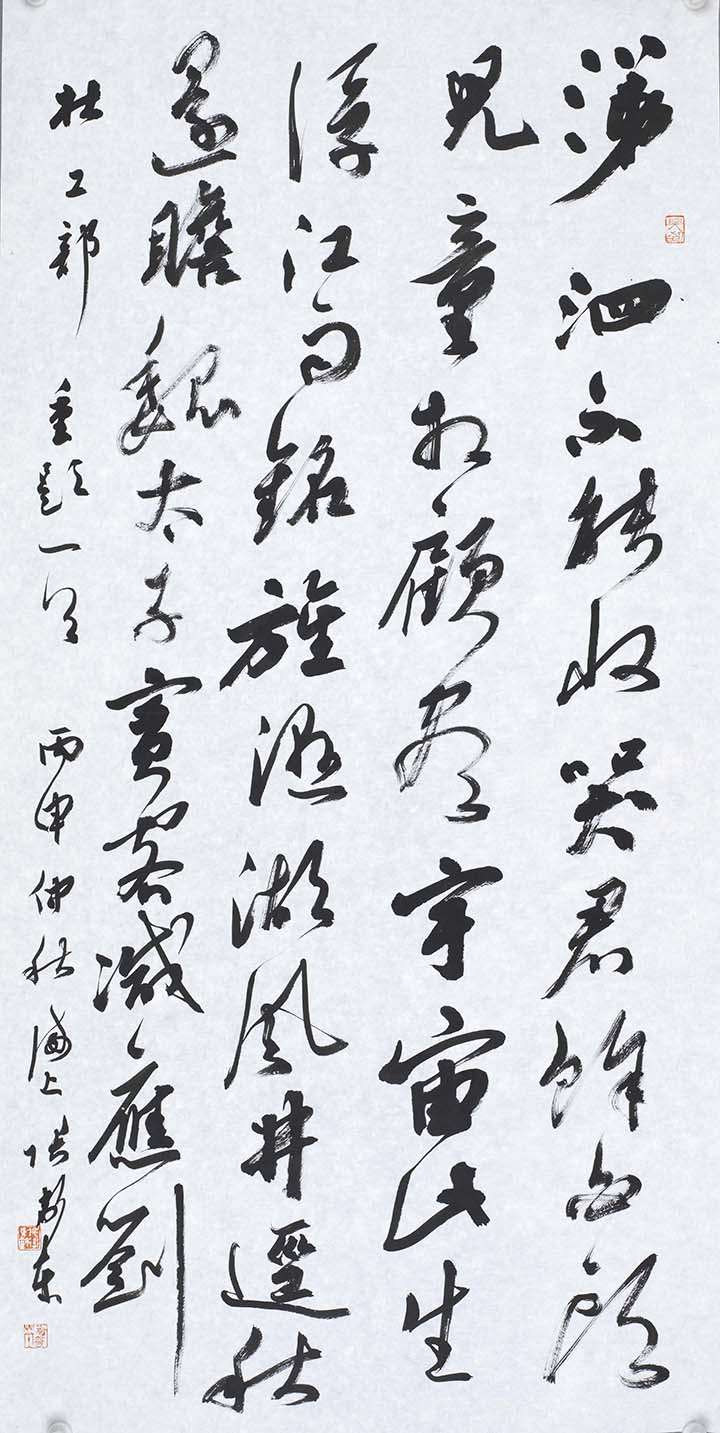 涕泗不能收哭君餘白頭
兒童相顧盡宇宙此生
浮江雨銘旌濕湖風井逕秋
還瞻魏太子賓客減應劉
杜工部 重題一首 丙申仲秋海上